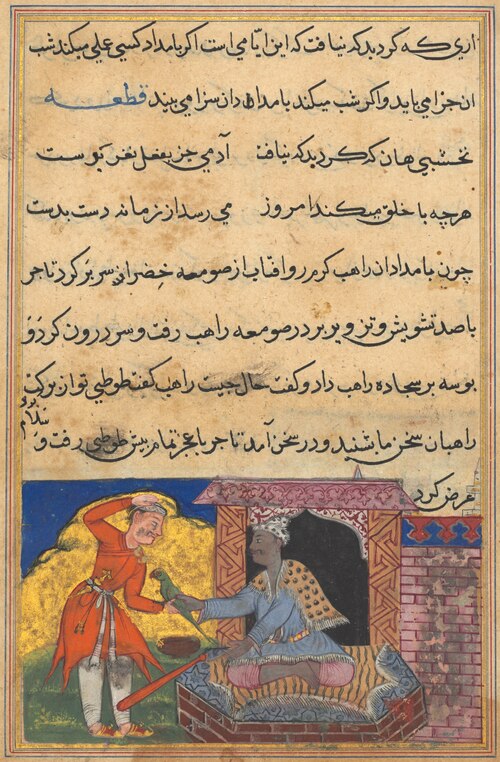 اری که کرد بد که نیافت که این ایامی است اگر بامداد کسی عملی میکند شب
ان جزا می یابد و اگر شب میکند بامدادان سزا می بیند قطعه
نخشبی هان که کرد بد که نیافت آدمی جز بفعل نغز نوست
هر چه با خلق میکند امروز می رسد از زمانه دست بدست
چون بامدادان راهب کرم رو افتاب از صومعه خضرا سر بر کرد تاجر
باصد تشویش و در صومعه راهب رفت و سر درون کرد و
بوسه بر سجاده راهب داد و کفت حال چیست راهب کفت طوطی تو از برکت
راهبان سخن ما بشنید و در سخن آمد تاجر باعجز تمام پیش طوطی رفت و
سلام
عرض کرد